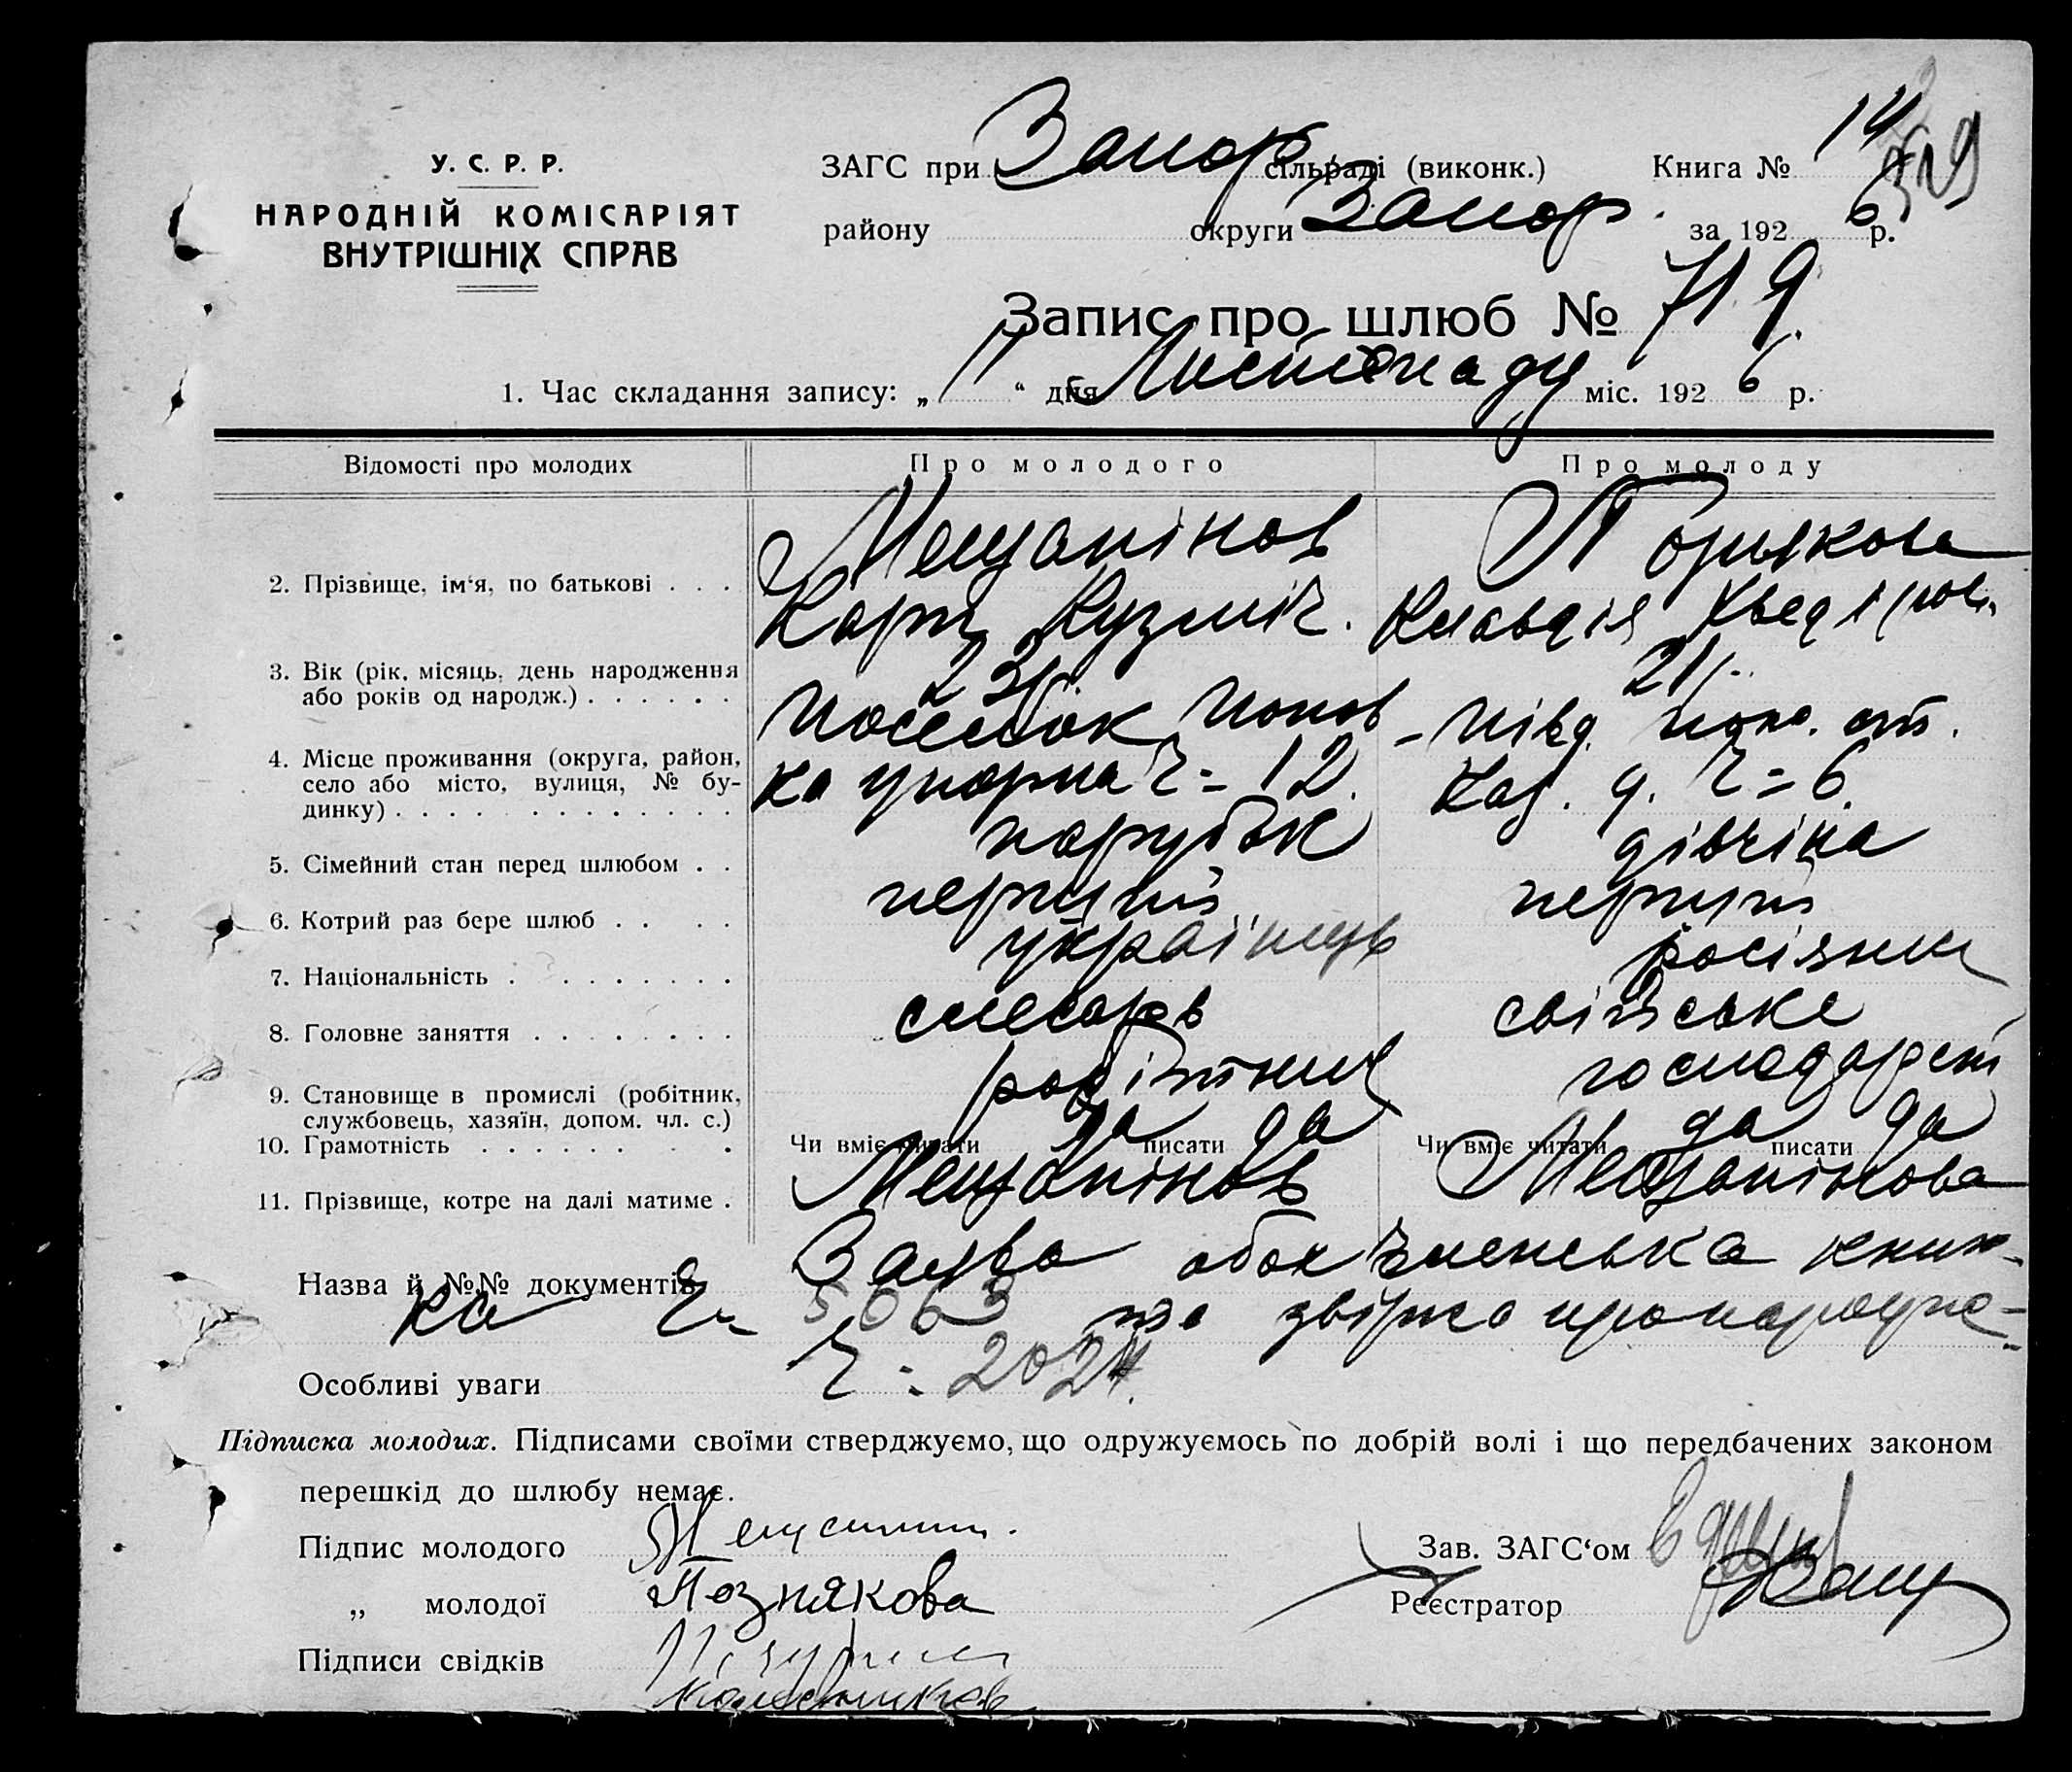 14
У. С. Р. Р.
ЗАГС при Запор. сільраді (виконк.) Книга №
НАРОДНІЙ КОМІСАРІЯТ
ВНУТРІШНІХ СПРАВ
району округи Запор. за 1926 р.
Запис про шлюб № 719.
1. Час складання запису: „11“ дня Листопаду міс. 1926 р.
Відомості про молодих Про молодого Про молоду
Мещанінов
2. Прізвище, ім‘я, по батькові . . .
Карп Кузміч. Клавдія
3. Вік (рік, місяць, день народження
або років од народж.) . . . . . . 23р. 21р.
посьолок Попов
4. Місце проживання (округа, район,
село або місто, вулиця, № бу-
динку) . . . . . . . . . . . . .
ка ч=12. Каз. д. ч=6.
5. Сімейний стан перед шлюбом . . парубок дівчіна
6. Котрий раз бере шлюб . . . . перший перший
7. Національність . . . . . . . українець
8. Головне заняття . . . . . . . слесарь
9. Становище в промислі (робітник,
службовець, хазяїн, допом. чл. с.) робітник
10. Грамотність . . . . . . . . Чи вміє читати да писати да Чи вміє читати да писати да
11. Прізвище, котре на далі матиме . Мещанінов Мещанінова
Назва й №№ документів Заява обох членська книж-
ка ч= 5663 та
Особливі уваги ч=2024.
Підписка молодих. Підписами своїми стверджуємо, що одружуємось по добрій волі і що передбачених законом
перешкід до шлюбу немає.
Підпис молодого
Зав. ЗАГС‘ом
„ молодої Познякова
Реєстратор
Підписи свідків